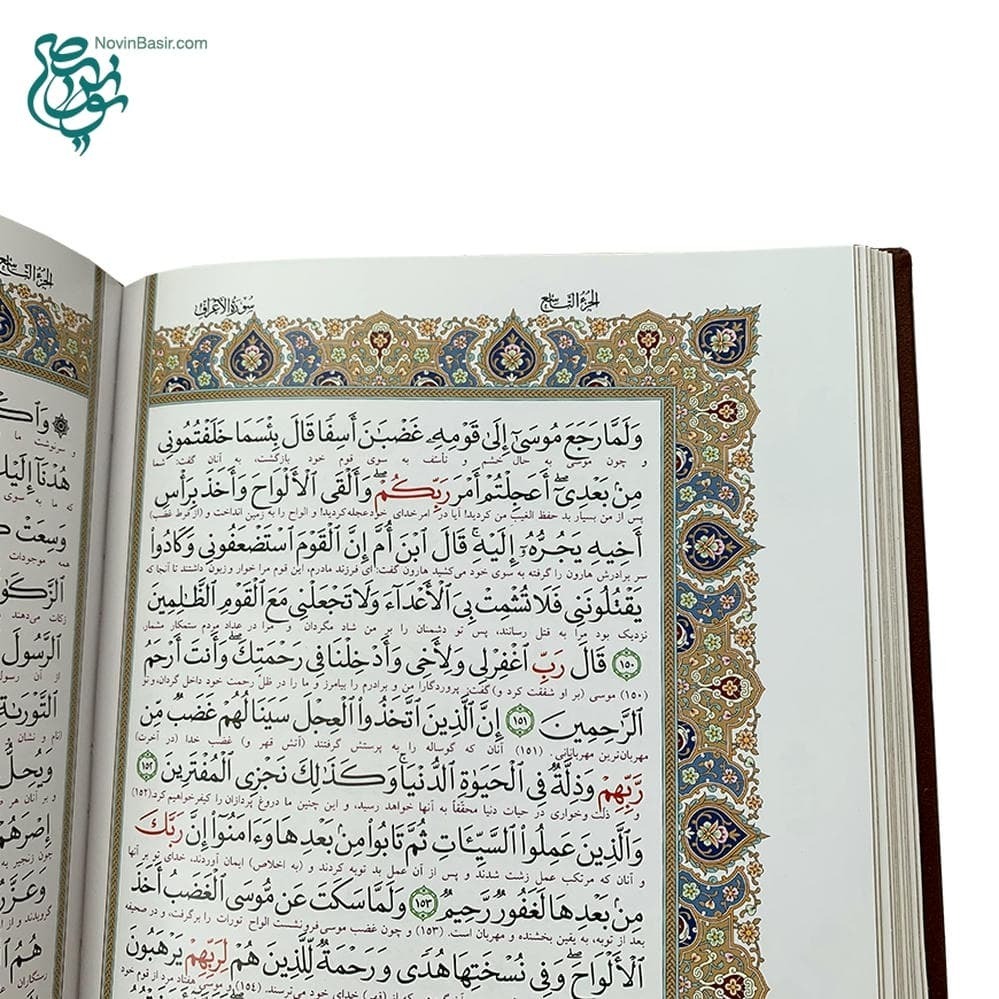 NovinBasir.com
الجزء التاسع
سورة الأعراف
وَلَمَّا رَجَعَ مُوسَىٰٓ إِلَىٰ قَوْمِهِۦ غَضْبَٰنَ أَسِفًا قَالَ بِئْسَمَا خَلَفْتُمُونِى
و چون موسی به حال خشم و تأسف به سوی قوم خود بازگشت، به آنان گفت: شما
مِنۢ بَعْدِىٓ ۖ أَعَجِلْتُمْ أَمْرَ رَبِّكُمْ ۖ وَأَلْقَى ٱلْأَلْوَاحَ وَأَخَذَ بِرَأْسِ
پس از من بسیار بد حفظ الغیب من کردید! آیا در امر خدای خود عجله کردید! و الواح را به زمین انداخت و (از فرط غضب)
أَخِيهِ يَجُرُّهُۥٓ إِلَيْهِ ۚ قَالَ ٱبْنَ أُمَّ إِنَّ ٱلْقَوْمَ ٱسْتَضْعَفُونِى وَكَادُوا۟
سر برادرش هارون را گرفته به سوی خود می‌کشید هارون گفت: ای فرزند مادرم، این قوم مرا خوار و زبون داشتند تا آنجا که
يَقْتُلُونَنِى فَلَا تُشْمِتْ بِىَ ٱلْأَعْدَآءَ وَلَا تَجْعَلْنِى مَعَ ٱلْقَوْمِ ٱلظَّٰلِمِينَ
نزدیک بود مرا به قتل رسانند، پس تو دشمنان را بر من شاد مگردان و مرا در عداد مردم ستمکار مشمار.
١٥٠ قَالَ رَبِّ ٱغْفِرْ لِى وَلِأَخِى وَأَدْخِلْنَا فِى رَحْمَتِكَ ۖ وَأَنتَ أَرْحَمُ
(۱۵۰) موسی (بر او شفقت کرد و) گفت: پروردگارا من و برادرم را بیامرز و ما را در ظلّ رحمت خود داخل گردان، و تو
ٱلرَّٰحِمِينَ ١٥١ إِنَّ ٱلَّذِينَ ٱتَّخَذُوا۟ ٱلْعِجْلَ سَيَنَالُهُمْ غَضَبٌ مِّن
مهربان‌ترین مهربانانی. (۱۵۱) آنان که گوساله را به پرستش گرفتند (آتش قهر و) غضب خدا (در آخرت)
رَّبِّهِمْ وَذِلَّةٌ فِى ٱلْحَيَوٰةِ ٱلدُّنْيَا ۚ وَكَذَٰلِكَ نَجْزِى ٱلْمُفْتَرِينَ ١٥٢
و ذلت وخواری در حیات دنیا محققاً به آنها خواهد رسید، و این چنین ما دروغ پردازان را کیفر خواهیم کرد. (۱۵۲)
وَٱلَّذِينَ عَمِلُوا۟ ٱلسَّيِّـَٔاتِ ثُمَّ تَابُوا۟ مِنۢ بَعْدِهَا وَءَامَنُوٓا۟ إِنَّ رَبَّكَ
و آنان که مرتکب عمل زشت شدند و پس از آن عمل بد توبه کردند و (به اخلاص) ایمان آوردند، خدای تو بر آنها
مِنۢ بَعْدِهَا لَغَفُورٌ رَّحِيمٌ ١٥٣ وَلَمَّا سَكَتَ عَن مُّوسَى ٱلْغَضَبُ أَخَذَ
بعد از توبه، به یقین بخشنده و مهربان است. (۱۵۳) و چون غضب موسی فرونشست الواح تورات را برگرفت، و در صحیفه
ٱلْأَلْوَاحَ ۖ وَفِى نُسْخَتِهَا هُدًى وَرَحْمَةٌ لِّلَّذِينَ هُمْ لِرَبِّهِمْ يَرْهَبُونَ
(قهر) خدای خود می‌ترسند. (۱۵۴) و موسی هفتاد مرد از قوم خود
الجزء التاسع
هُدْنَآ إِلَيْكَ
که ما به سوی
وَسِعَتْ
همه موجودات
ٱلزَّكَوٰةَ
زکات می‌دهند
ٱلرَّسُولَ
از آن رسول
ٱلتَّوْرَىٰةِ
(نام و نشان
وَيُحِلُّ
و بر آنان هر
إِصْرَهُمْ
چون زنجیر به
وَعَزَّرُ
گرویدند و از او
هُمُ
رستگاران